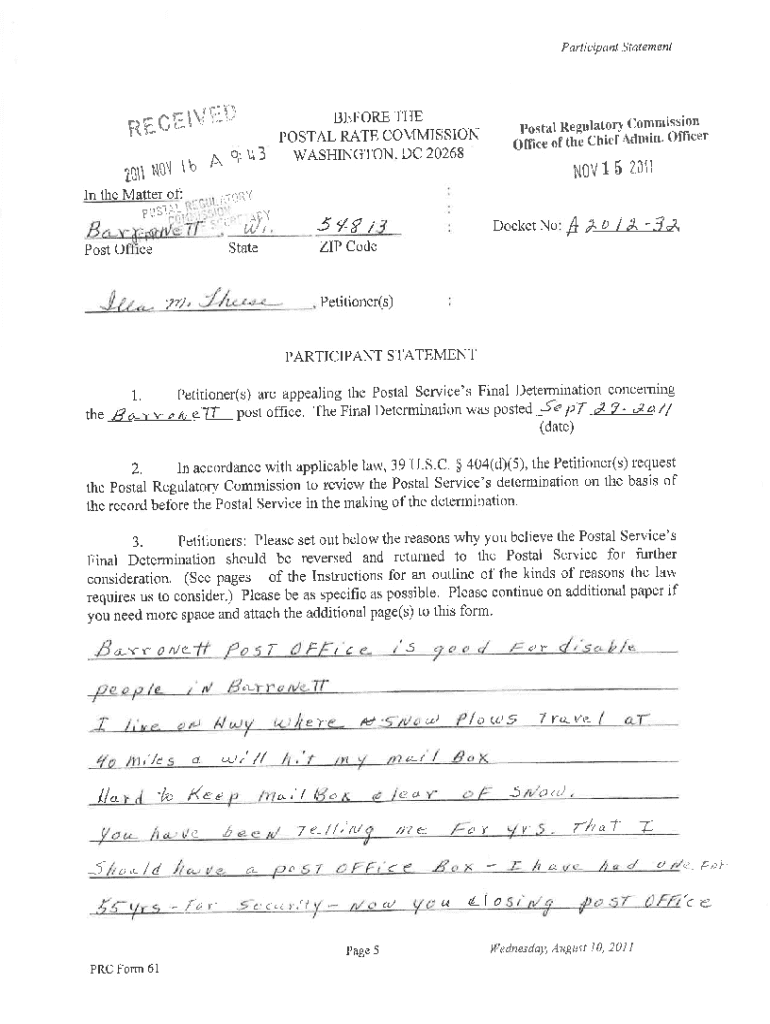 Participant Statement
RECEIVED
2011 NOV 16 A 9:43
POSTAL REGULATORY
COMMISSION
BEFORE THE
POSTAL RATE COMMISSION
WASHINGTON, DC 20268
Postal Regulatory Commission
Office of the Chief Admin. Officer
NOV 15 2011
In the Matter of:
Barronett, Wi. 54813 : Docket No: A2012-32
Post Office State ZIP Code
Illa M. Theese, Petitioner(s) :
PARTICIPANT STATEMENT
1. Petitioner(s) are appealing the Postal Service's Final Determination concerning
the Barronett post office. The Final Determination was posted Sept 29-2011
(date)
2. In accordance with applicable law, 39 U.S.C. § 404(d)(5), the Petitioner(s) request
the Postal Regulatory Commission to review the Postal Service's determination on the basis of
the record before the Postal Service in the making of the determination.
3. Petitioners: Please set out below the reasons why you believe the Postal Service's
Final Determination should be reversed and returned to the Postal Service for further
consideration. (See pages of the Instructions for an outline of the kinds of reasons the law
requires us to consider.) Please be as specific as possible. Please continue on additional paper if
you need more space and attach the additional page(s) to this form.
Barronett Post Office is good For disable
people in Barronett
I live on Hwy where Snow Plows Travel at
40 miles a will hit my mail Box
Hard to Keep mail Box clear of Snow.
You have been Telling me For yrs. That I
Should have a post office Box - I have had one For
55 yrs - For Security - Now you closing post office
Page 5
Wednesday, August 10, 2011
PRC Form 61